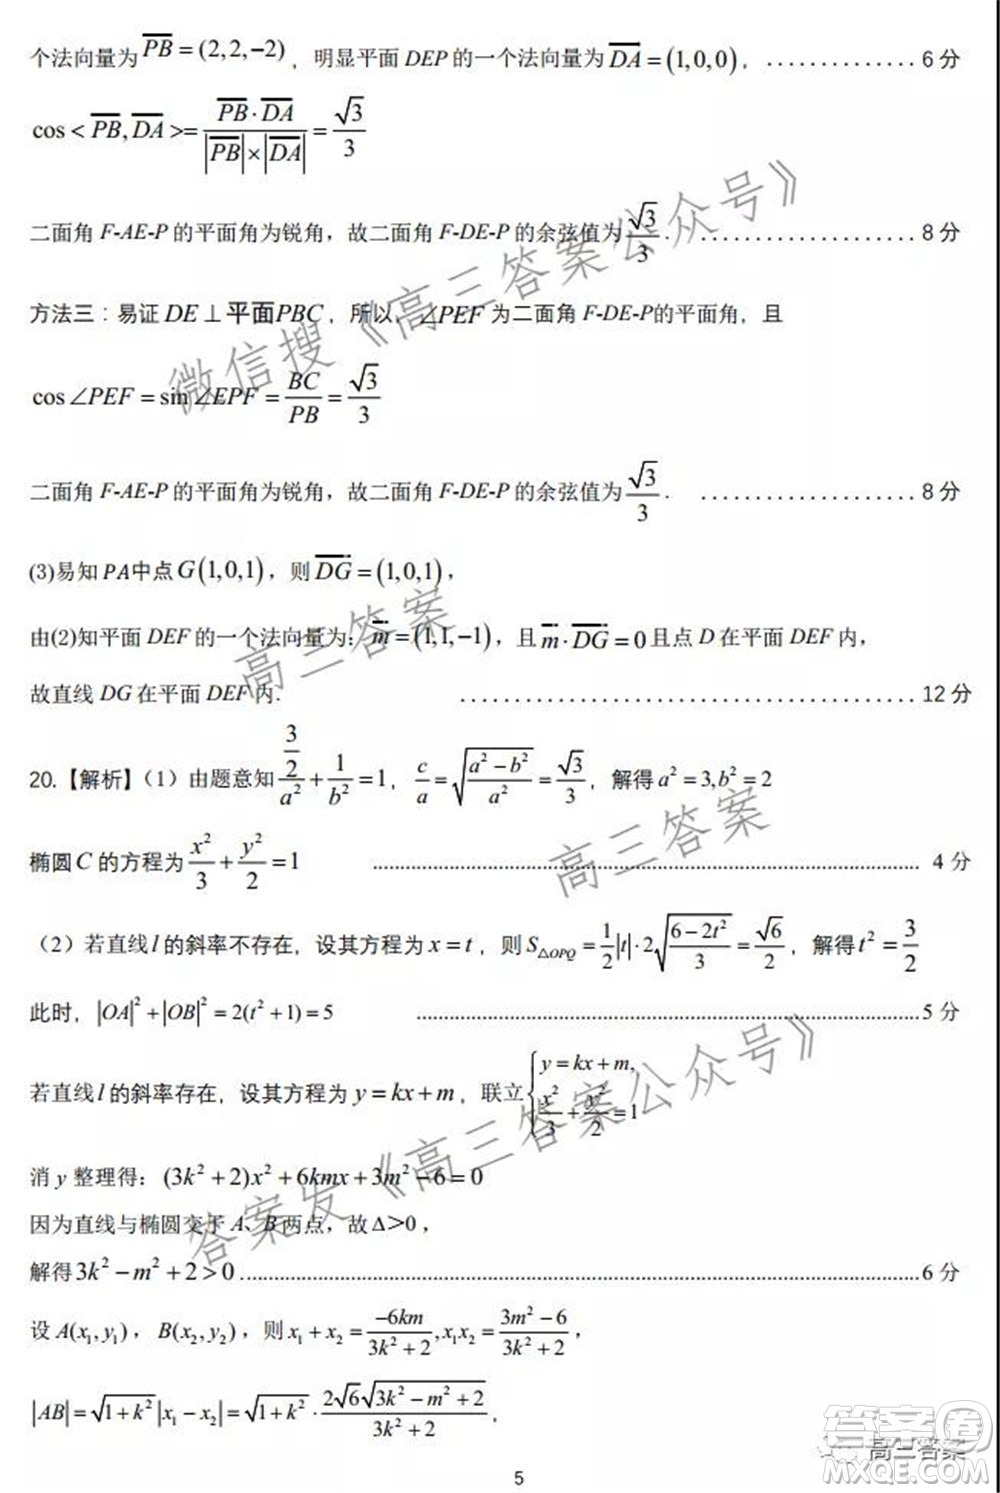 个法向量为 $\overrightarrow{PB}=(2,2,-2)$，明显平面 DEP 的一个法向量为 $\overrightarrow{DA}=(1,0,0)$，..............6 分
$\cos<\overrightarrow{PB},\overrightarrow{DA}>=\frac{\overrightarrow{PB}\cdot\overrightarrow{DA}}{|\overrightarrow{PB}|\times|\overrightarrow{DA}|}=\frac{\sqrt{3}}{3}$
二面角 F-AE-P 的平面角为锐角，故二面角 F-DE-P 的余弦值为 $\frac{\sqrt{3}}{3}$. ....................8 分
方法三：易证 DE⊥平面PBC，所以，∠PEF 为二面角 F-DE-P的平面角，且
$\cos\angle PEF=\sin\angle EPF=\frac{BC}{PB}=\frac{\sqrt{3}}{3}$
二面角 F-AE-P 的平面角为锐角，故二面角 F-DE-P 的余弦值为 $\frac{\sqrt{3}}{3}$. ....................8 分
(3)易知 PA中点 $G(1,0,1)$，则 $\overrightarrow{DG}=(1,0,1)$，
由(2)知平面 DEF 的一个法向量为：$\overrightarrow{m}=(1,1,-1)$，且 $\overrightarrow{m}\cdot\overrightarrow{DG}=0$ 且点 D 在平面 DEF 内，
故直线 DG 在平面 DEF 内. ..........................................12 分
20.【解析】（1）由题意知 $\frac{\frac{3}{2}}{a^2}+\frac{1}{b^2}=1$，$\frac{c}{a}=\sqrt{\frac{a^2-b^2}{a^2}}=\frac{\sqrt{3}}{3}$，解得 $a^2=3,b^2=2$
椭圆 C 的方程为 $\frac{x^2}{3}+\frac{y^2}{2}=1$ ..........................................4 分
（2）若直线 l 的斜率不存在，设其方程为 $x=t$，则 $S_{\triangle OPQ}=\frac{1}{2}|t|\cdot 2\sqrt{\frac{6-2t^2}{3}}=\frac{\sqrt{6}}{2}$，解得 $t^2=\frac{3}{2}$
此时，$|OA|^2+|OB|^2=2(t^2+1)=5$ ..........................................5 分
若直线 l 的斜率存在，设其方程为 $y=kx+m$，联立 $\begin{cases}y=kx+m,\\\frac{x^2}{3}+\frac{y^2}{2}=1\end{cases}$
消 y 整理得：$(3k^2+2)x^2+6kmx+3m^2-6=0$
因为直线与椭圆交于 A、B 两点，故 Δ>0，
解得 $3k^2-m^2+2>0$..........................................6 分
设 $A(x_1,y_1)$，$B(x_2,y_2)$，则 $x_1+x_2=\frac{-6km}{3k^2+2},x_1x_2=\frac{3m^2-6}{3k^2+2}$，
$|AB|=\sqrt{1+k^2}|x_1-x_2|=\sqrt{1+k^2}\cdot\frac{2\sqrt{6}\sqrt{3k^2-m^2+2}}{3k^2+2}$，
5
微信搜《高三答案公众号》
高三答案
高三答案
答案发《高三答案公众号》
高三答案
答案圈
MXQE.COM